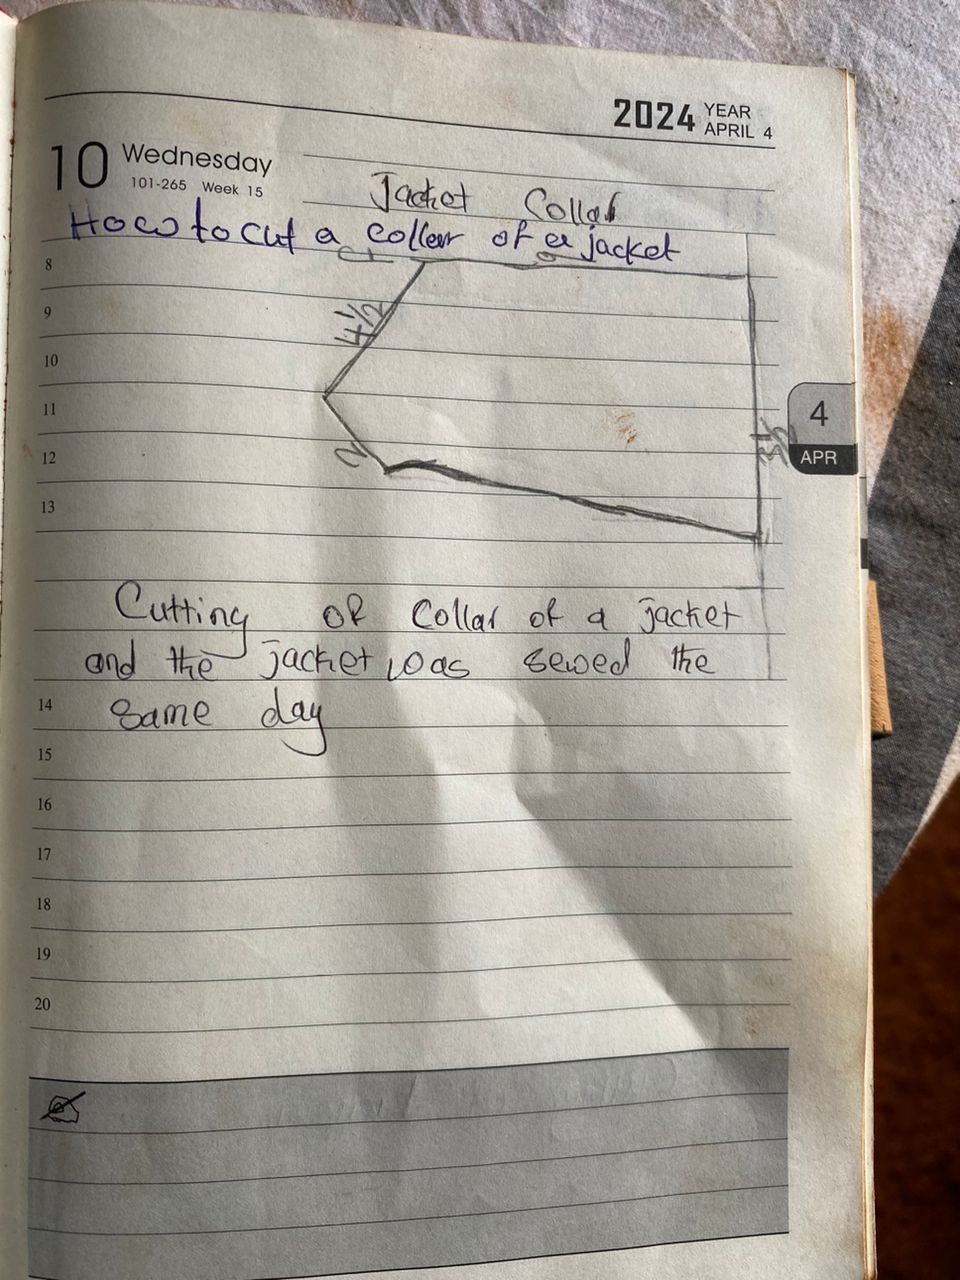 2024 YEAR
APRIL 4
10 Wednesday
101-265 Week 15
Jacket Collar
How to cut a coller of a jacket
8
4½
9
10
11
4
3½
12
2
APR
13
Cutting of Collar of a jacket
and the jacket was sewed the
14
same day
15
16
17
18
19
20